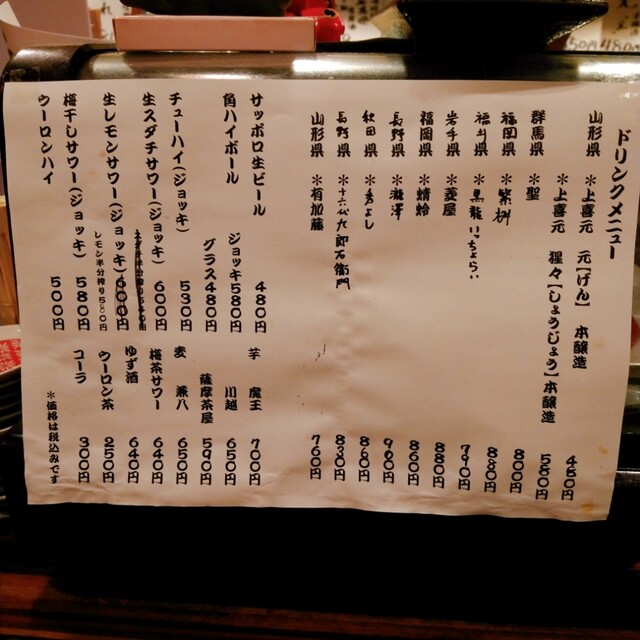 ドリンクメニュー
山形県 *上喜元 元【げん】 本醸造 450円
*上喜元 猩々【しょうじょう】本醸造 550円
群馬県 *聖 800円
福岡県 *繁桝 880円
福井県 *黒龍いっちょらい 790円
岩手県 *菱屋 880円
福岡県 *蜻蛉 860円
長野県 *瀧澤 900円
秋田県 *秀よし 860円
長野県 *十六代九郎右衛門 830円
山形県 *有加藤 760円
サッポロ生ビール
ジョッキ580円
グラス480円
角ハイボール 480円
チューハイ(ジョッキ) 530円
生スダチサワー(ジョッキ) 600円
生レモンサワー(ジョッキ) 600円
レモン半分搾り580円
梅干しサワー(ジョッキ) 580円
ウーロンハイ 500円
芋 魔王 700円
川越 650円
薩摩茶屋 590円
麦 兼八 650円
梅茶サワー 640円
ゆず酒 640円
ウーロン茶 250円
コーラ 300円
*価格は税込みです